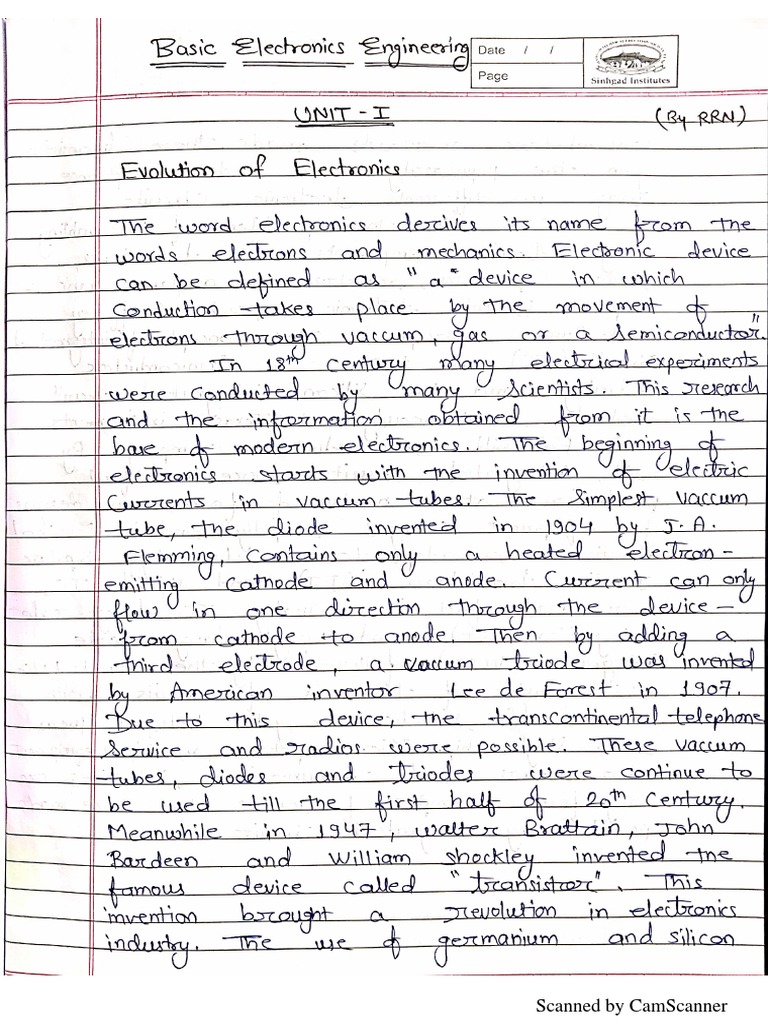 Basic Electronics Engineering
Date / /
Page
Sinhgad Institutes
UNIT - I
(By RRN)
Evolution of Electronics
The word electronics derives its name from the
words electrons and mechanics. Electronic device
can be defined as "a" device in which
Conduction takes place by the movement of
electrons through vaccum, gas or a semiconductor".
In 18th century many electrical experiments
were conducted by many scientists. This research
and the information obtained from it is the
base of modern electronics. The beginning of
electronics starts with the invention of electric
Currents in vaccum tubes. The simplest vaccum
tube, the diode invented in 1904 by J. A.
Flemming, contains only a heated electron-
emitting cathode and anode. Current can only
flow in one direction through the device -
from cathode to anode. Then by adding a
third electrode, a vaccum triode was invented
by American inventor Lee de Forest in 1907.
Due to this device, the transcontinental telephone
service and radios were possible. These vaccum
tubes, diodes and triodes were continue to
be used till the first half of 20th Century.
Meanwhile in 1947, walter Brattain, John
Bardeen and William shockley invented the
famous device called "transistor". This
invention brought a revolution in electronics
industry. The use of germanium and silicon
Scanned by CamScanner